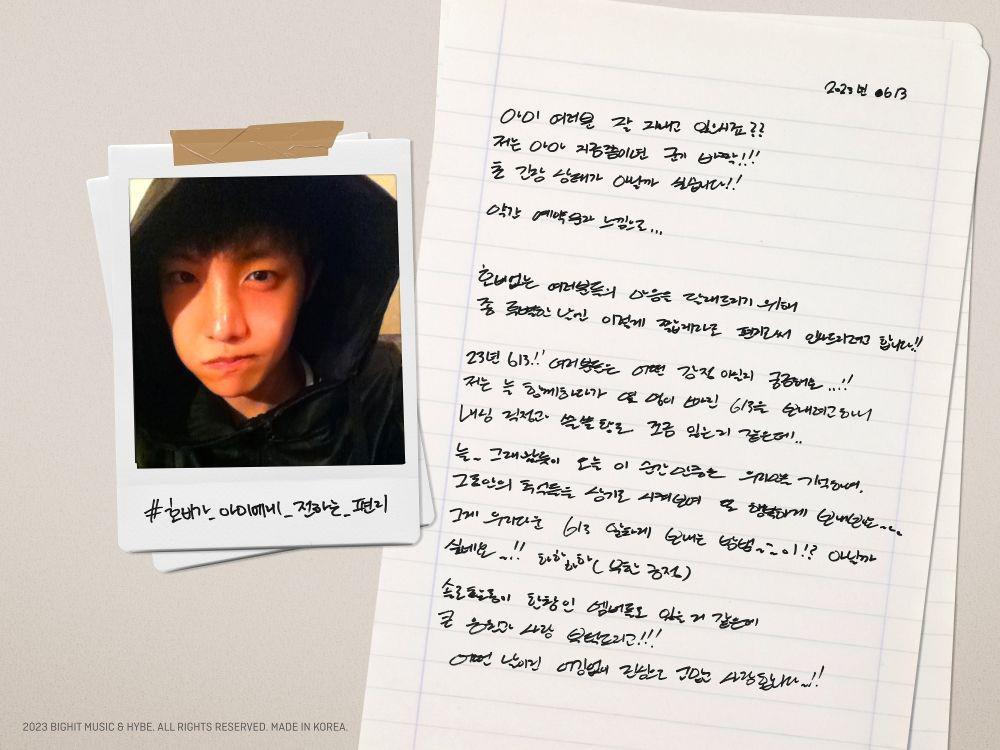 2023년 0613
아미 여러분 잘 지내고 있으시죠??
저는 아마 지금쯤이면 군기 바짝!!!
초 긴장 상태가 아닐까 싶습니다!!
약간 예약문자 느낌으로...
호비없는 여러분들의 마음을 달래드리기 위해
좀 특별한 날인 이렇게 짧게나마 편지로써 인사드리려고 합니다!!
23년 613!! 여러분들은 어떤 감정 아닐지 궁금해요..!!
저는 늘 함께하다가 또 없이 613을 보내려고하니
내심 걱정과 씁쓸함도 조금 있는거 같은데..
늘_ 그래왔듯이 오늘 이 순간만큼은 우리으로 기억하며,
그동안의 추억들을 상기도 시켜보며 또 행복하게 보내봐요~~
그게 우리다운 613 알차게 보내는 방법~~이!? 아닐까
싶네요_!! 하하하하(
솔로활동이 한창인 멤버들도 있을 거 같은데
큰 응원과 사랑 부탁드리고!!!
어떤 날이건 어김없이 진심으로 고맙고 사랑합니다_!!
#호비가_아미에게_전하는_편지
2023 BIGHIT MUSIC & HYBE. ALL RIGHTS RESERVED. MADE IN KOREA.